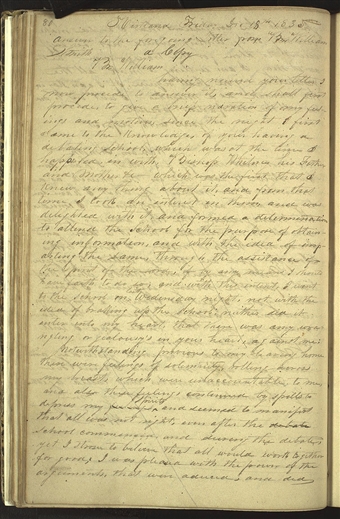 18th 1835
answer to the foregoing letter from Br William
Smith a Copy
Br William
having received your letter I
now proceed to answer it, and shall first
proceed to give a brief naration of my feel
ings and motives since the night I first
came to the knowledge of your having a
debating school, which was at the time I
happened in with Bishop Whitney his Father
and Mother &c which was the first that I
knew any thing about it and from that
time I took an interest in them and was
delighted with it, and formed a determination
to attend the school for the purpose of obtain
ing information, and with the idea of imp
arting the same, through the assistance of
the spirit of if by any means I
have faith to do so and with this intent I went
to the school on Wednesday night, not with the
idea of braking up the school, neither did it
enter into my heart, that there was any wra
ngling or jealousy's in your heart, against me
Notwithstanding previous to my leaving home
there were feelings of solemnity rolling across
my breast, which were unaccountable to me
and also these feelings continued by spells to
depress my and seemed to manifest
that all was not right, even after the debate
school commenced, and during the debate
yet I strove to believe that all would work together
for good; I was pleased with the power of the
arguments, that were aduced, and did